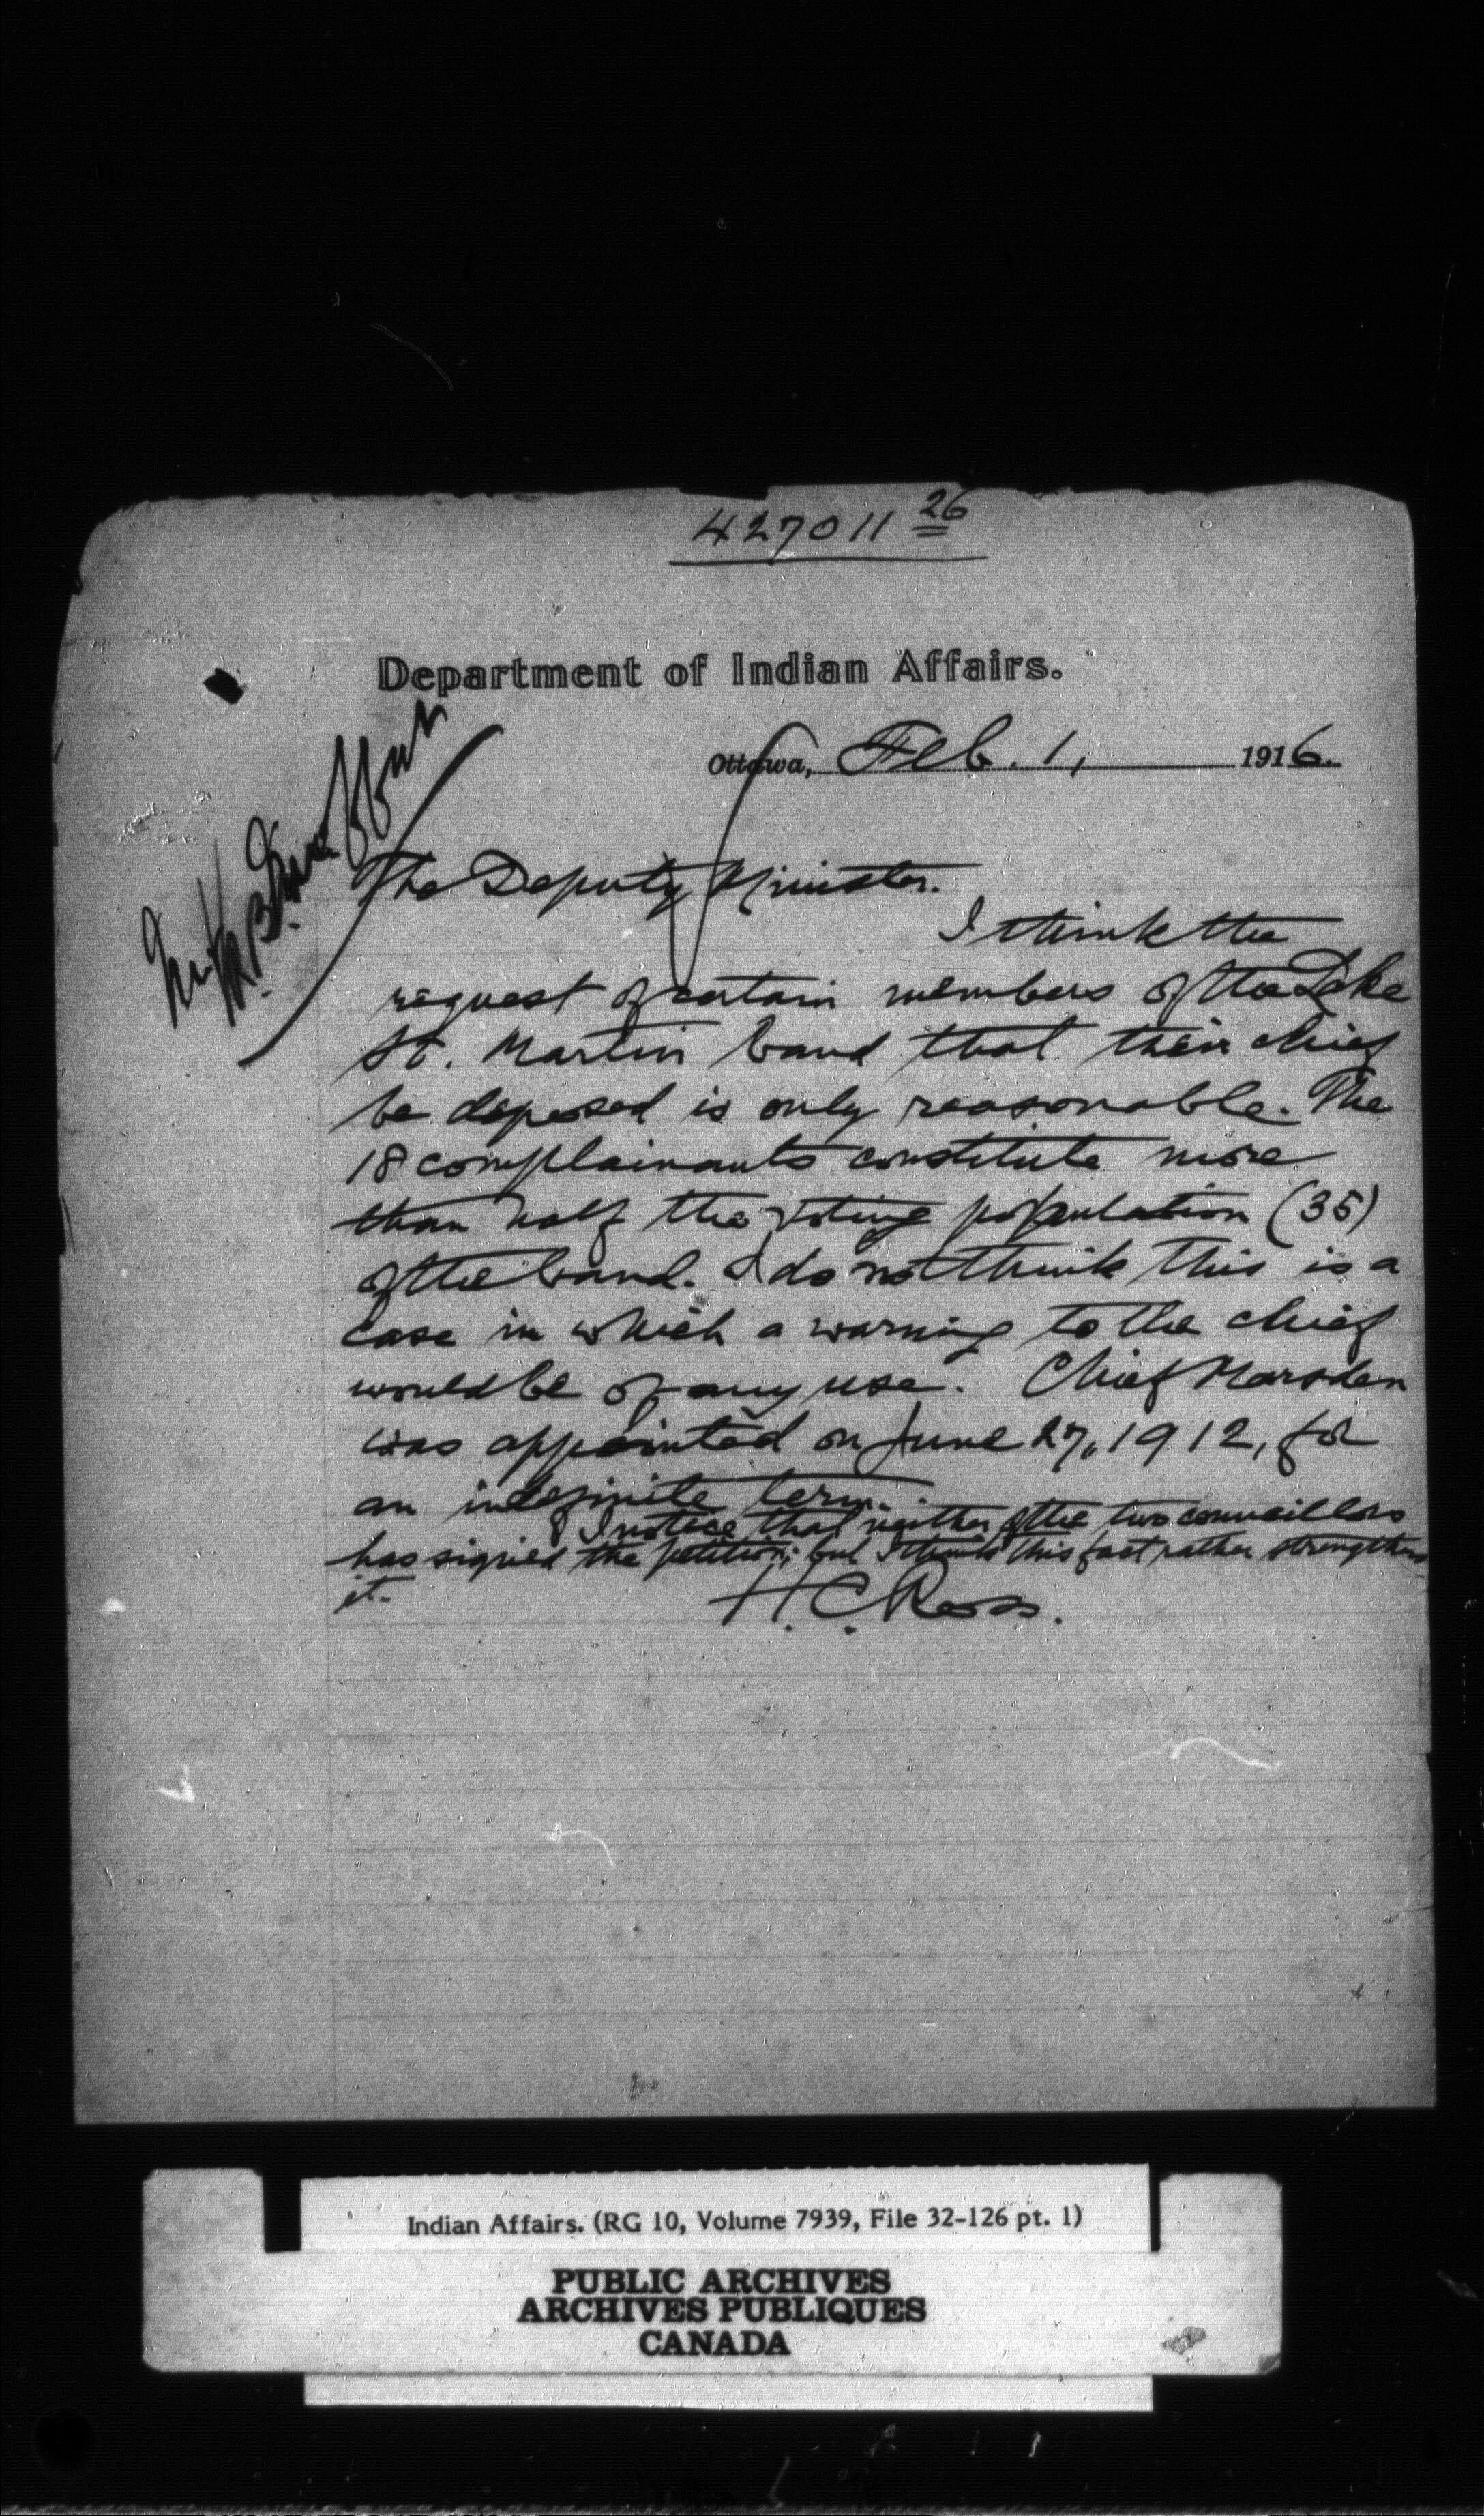 427011 26
Department of Indian Affairs.
Ottawa, Feb. 1, 1916.
The Deputy Minister.
I think the
request of certain members of the Lake
St. Martin band that their chief
be deposed is only reasonable. The
18 complainants constitute more
than half the voting population (35)
of the band. I do not think this is a
case in which a warning to the chief
would be of any use. Chief Marsden
was appointed on June 27, 1912, for
an indefinite term.
I notice that neither of the two councillors
has signed the petition; but I think this fact rather strengthens
it.
H. C. Ross.
Indian Affairs. (RG 10, Volume 7939, File 32-126 pt. 1)
PUBLIC ARCHIVES
ARCHIVES PUBLIQUES
CANADA